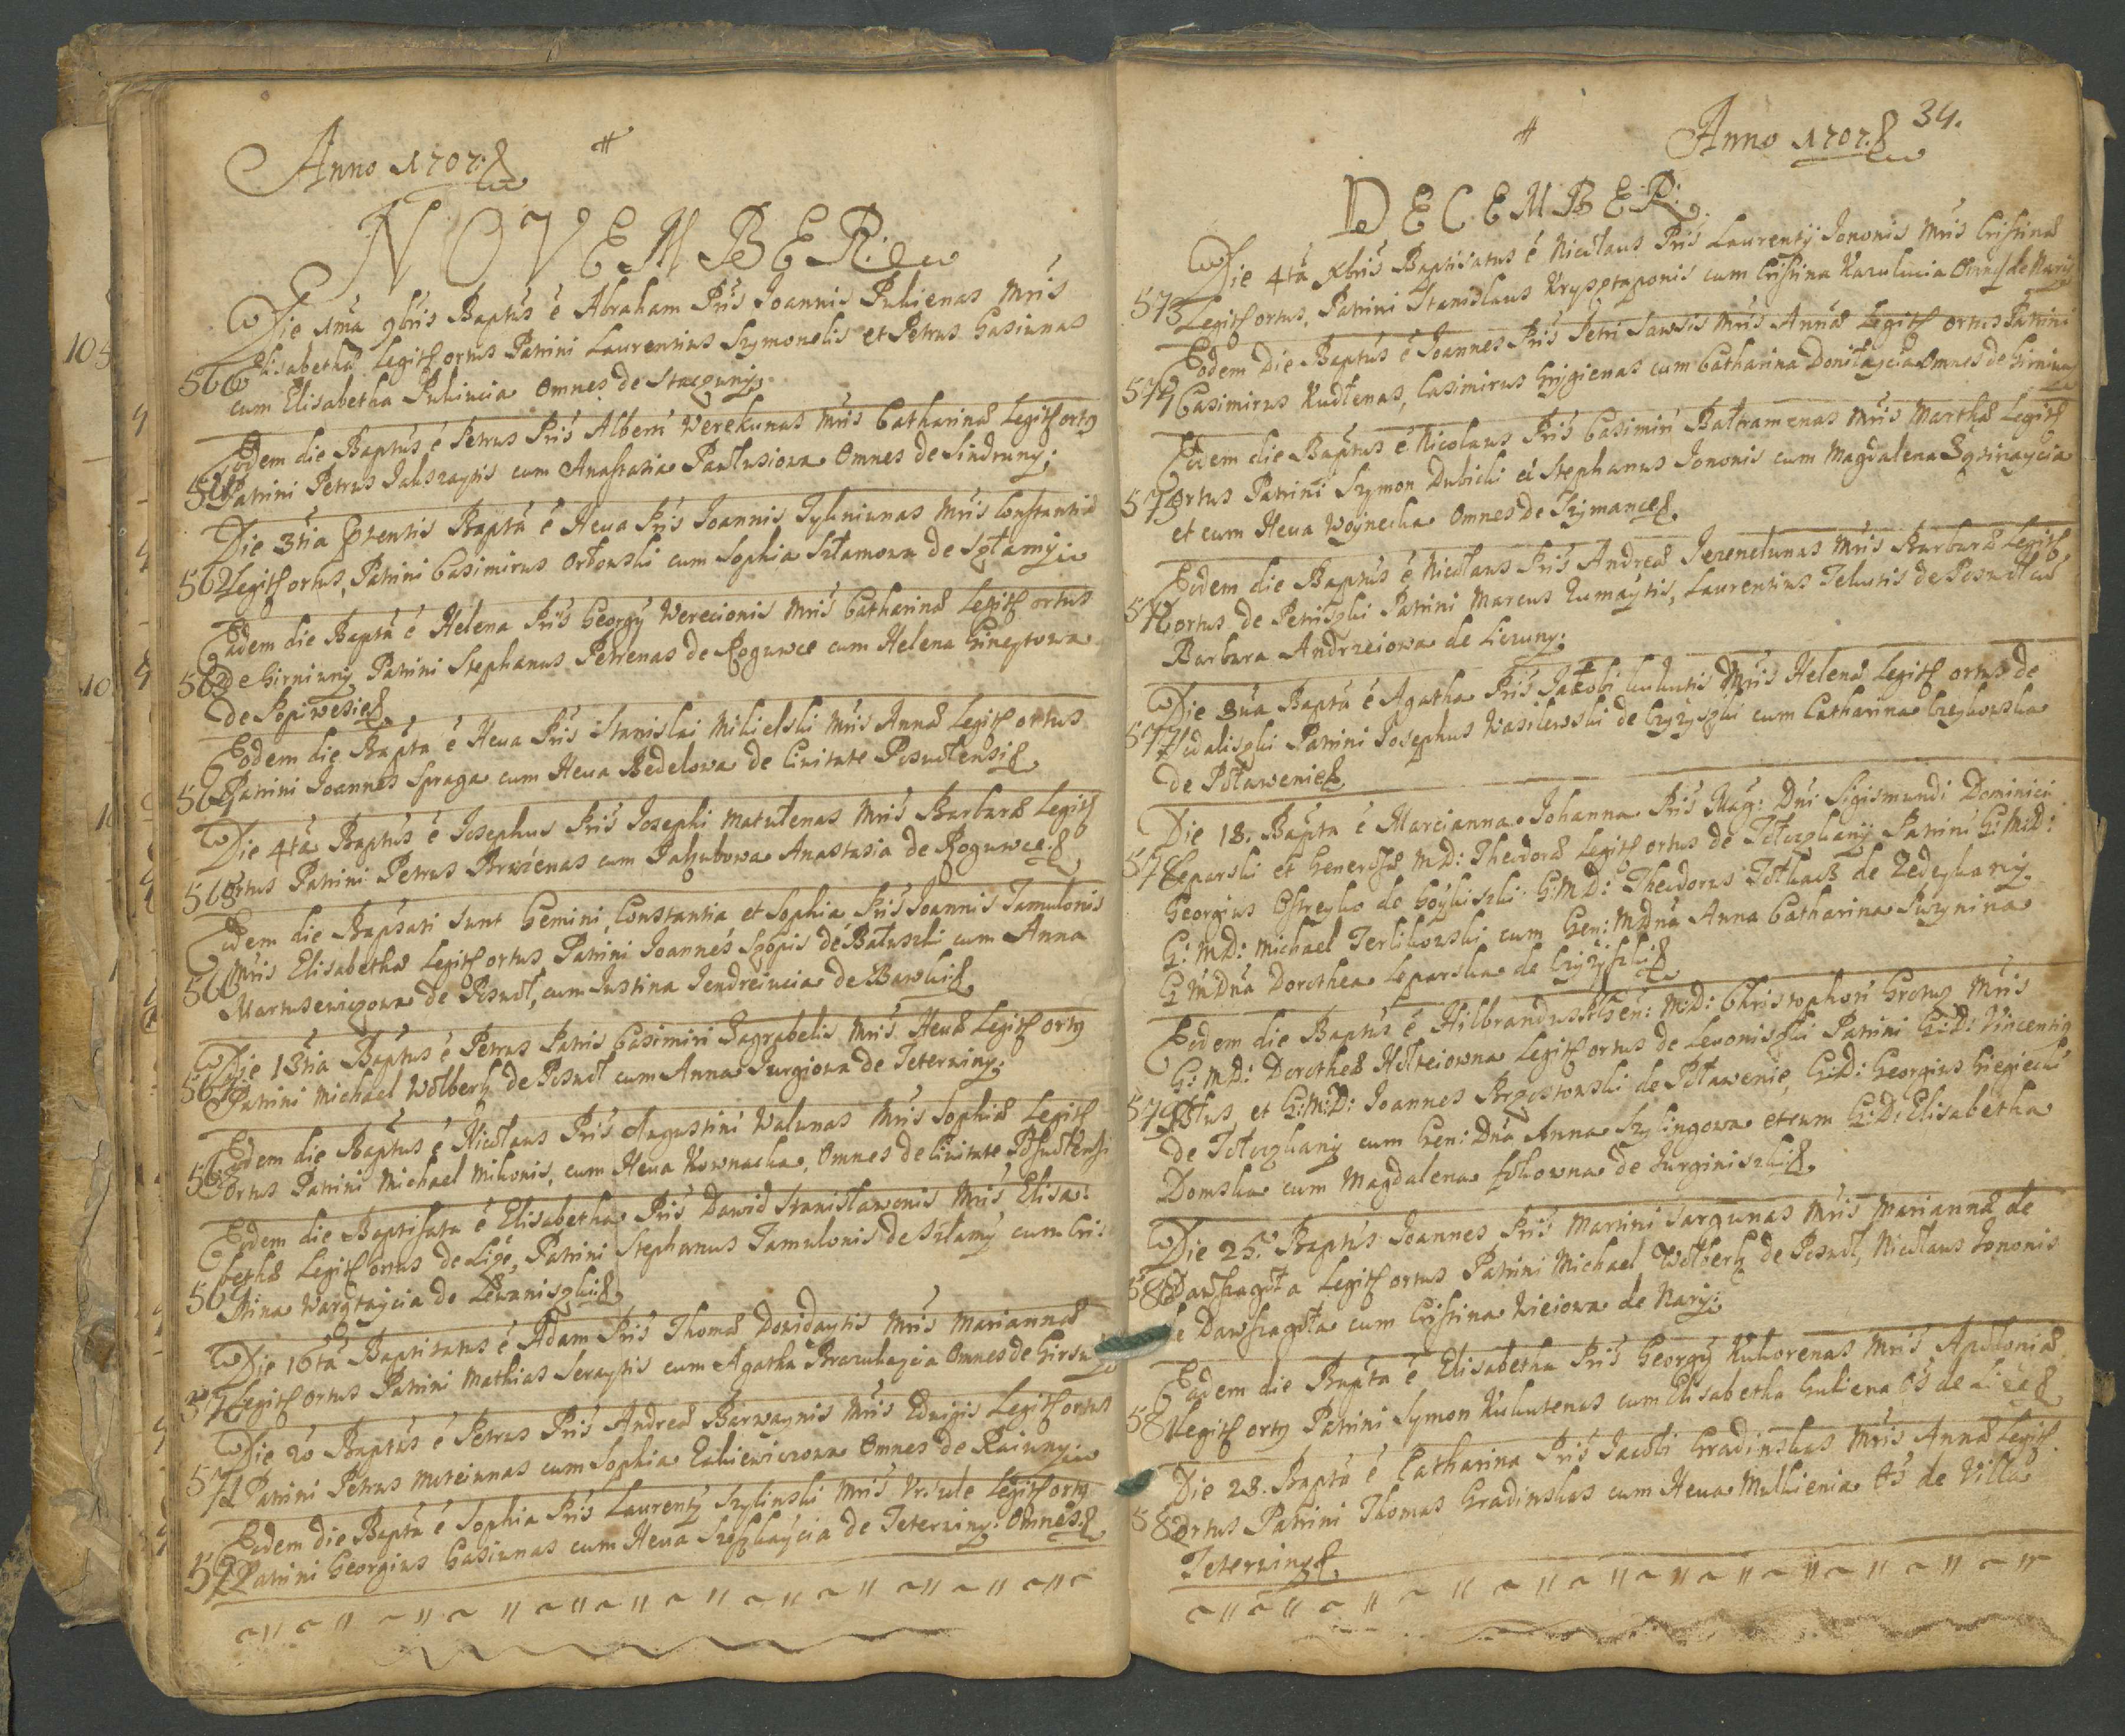 Anno 1707.
NOVEMBER.
Die 1ma 9bris Baptus é Abraham Pris Joannis Pukienas Mris
566 Elisabethæ Legit ortus Patrini Laurentius Szymonelis et Petrus Gasiunas
cum Elisabetha Pukincia Omnes de
Eodem die Baptus é Petrus Pris Alberti Werekunas Mris Catharinæ Legit ortg
Patrini Petrus Jakszaytis cum Anastasia Pawlusiowa Omnes de Sindruny.
Die 3tia Baptа é Heua Pris Joannis Tyluniunas Mris Constantiæ
562 Legit ortus, Patrini Casimirus Orłowski cum Sophia Szłamowa de
Eadem die Bapta é Helena Pris Georgÿ Werecionis Mris Catharinæ Legit ortus
563 de Girniuny Patrini Stephanus Petrenas de Roguwce cum Helena Gineytowa
de Popiwesie
Eodem die Bapta é Heua Pris Stanislai Mikielski Mris Annæ Legit ortus
564 Patrini Joannes Spraga cum Heua Bedelowa de Civitate Posuolensi
Die 4ta Baptus é Josephus Pris Josephi Matułenas Mris Barbaræ Legit
565 ortus Patrini Petrus Brwienas cum Jakubowa Anastasia de Roguwce
Eodem die Bapsati Sunt Gemini, Constantia et Sophia Pris Joannis Jamulonis
566 Mris Elisabethæ Legit ortus Patrini Joannes Szopis de Bałuszki cum Anna
Martusewiczowa de Posuol, cum Justina Jendreiucia de Bawki
Die 13tia Baptus é Petrus Patris Casimiri Zagrabelis Mris Heuæ Legit ortg
567 Patrini Michael Wolberk de Posuol cum Anna Jurgiowa de Teterwiny.
Eodem die Baptus é Nicolaus Pris Augustini Walunas Mris Sophiæ Legit
568 ortus Patrini Michael Mikonis, cum Heua Kownacka, Omnes de Civitate Posuolensi
Eodem die Baptisata é Elisabetha Pris Dawid Stanisławonis Mris Elisa:
bethæ Legit ortus de Lige, Patrini Stephanus Jamulonis de Szłamy cum Cri:
569 stina Wargtaycia de Lewaniszki
Die 16ta Baptizatus é Adam Pris Thomæ Dowidaytis Mris Mariannæ
570 Legit ortus Patrini Mathias Seraytis cum Agatha Brazukaycia Omnes de
Die 20 Baptus é Petrus Pris Andreæ Barwaynis Mris Eduigis Legit ortus
571 Patrini Petrus Moteiunas cum Sophia Omnes de Raiuny.
Eodem die Bapta é Sophia Pris Laurentÿ Szylinski Mris Vrsule Legit ortg
572 Patrini Georgius Gasiunas cum Heua Szeszkaycia de Teterwiny. Omnes.
Anno 1707. 34.
DECEMBER.
Die 4ta Xbris Baptisatus é Nicolaus Pris Laurentÿ Jononis Mris Cristinæ
573 Legit ortus, Patrini Stanislaus Krysztaponis cum Cristina Kazulucia Omnes de Nary
Eodem Die Baptus é Joannes Pris Petri Sawsis Mris Annæ Legit ortus Patrini
574 Casimirus Kudłenas, Casimirus Grygienas cum Catharina Doniłaycia Omnes de Girniuny
Eodem die Baptus é Nicolaus Pris Casimiri Bałtramenas Mris Marthæ Legit
575 ortus Patrini Szymon Dubicki et Stephanus Jononis cum Magdalena
et cum Heua Woynecka Omnes De Tzymance
Eodem die Baptus é Nicolaus Pris Andreæ Jezenelunas Mris Barbaræ Legit
576 ortus de Petriszki Patrini Marcus Rumaytis, Laurentius Jelutis de Posuolæ
Barbara Andrzeiowa de Liczuny.
Die 8ua Bapta é Agatha Pris Jakobi Kukutis Mris Helenæ Legit ortus de
577 Widaliszki Patrini Josephus Wasilewski de Czyżyszki cum Catharina Czeykowska
de Poławenie
Die 18. Bapta é Marcianna Johanna Pris Mag: Dni Sigismundi Dominici
578 Leparski et Generosæ M D: Theodoræ Legit ortus de Tołoczkany Patrini G: M: D:
Georgius Ostreyko de Boykiszki G: M D: Theodorus Tołkacz de Zedeykany
G: M D: Michael Terlikowski cum Gen: Mdna Anna Catharina Suzynina
G M Dna Dorothea Leparska de Czyżyszki
Eodem die Baptus é Hilbrandus Gen: M: D: Christophori Grotus Mris
G: M D: Dorotheæ Holteiowna Legit ortus de Leuoniszki Patrini G: D: Vincentig
579 et G: M: D: Joannes Brzostowski de Poławenie, G: D: Georgius Giegiecki
de Tołoczkany cum Gen: Dna Anna Szylingowa et cum G: D: Elisabetha
Domska cum Magdalena Fokowna de Jurginiszki
Die 25. Baptus Joannes Pris Martini Sargunas Mris Mariannæ de
580 Dawszagoła Legit ortus Patrini Michael Wolberk de Posuol, Nicolaus Jononis
de Dawszagoła cum Cristina Kiciowa de Nary.
Eodem die Bapta é Elisabetha Pris Georgÿ Kukorenas Mris Apoloniæ
581 Legit ortg Patrini Symon Kukutenas cum Elisabetha Gukiena Os de
Die 28. Bapta é Catharina Pris Jacobi Gradinskas Mris Annæ Legit
582 ortus Patrini Thomas Gradinskas cum Heua Milkienia Os de Villa
Teterwiny